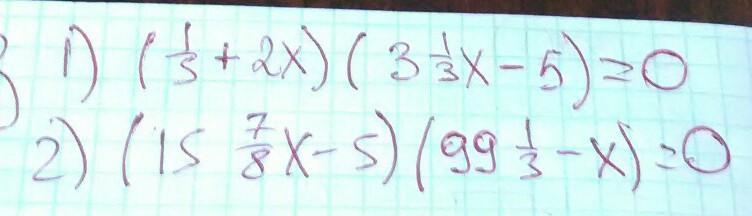 1) (1/3 + 2x) ( 3 1/3 x - 5) = 0
2) (15 7/8 x - 5) (99 1/3 - x) = 0